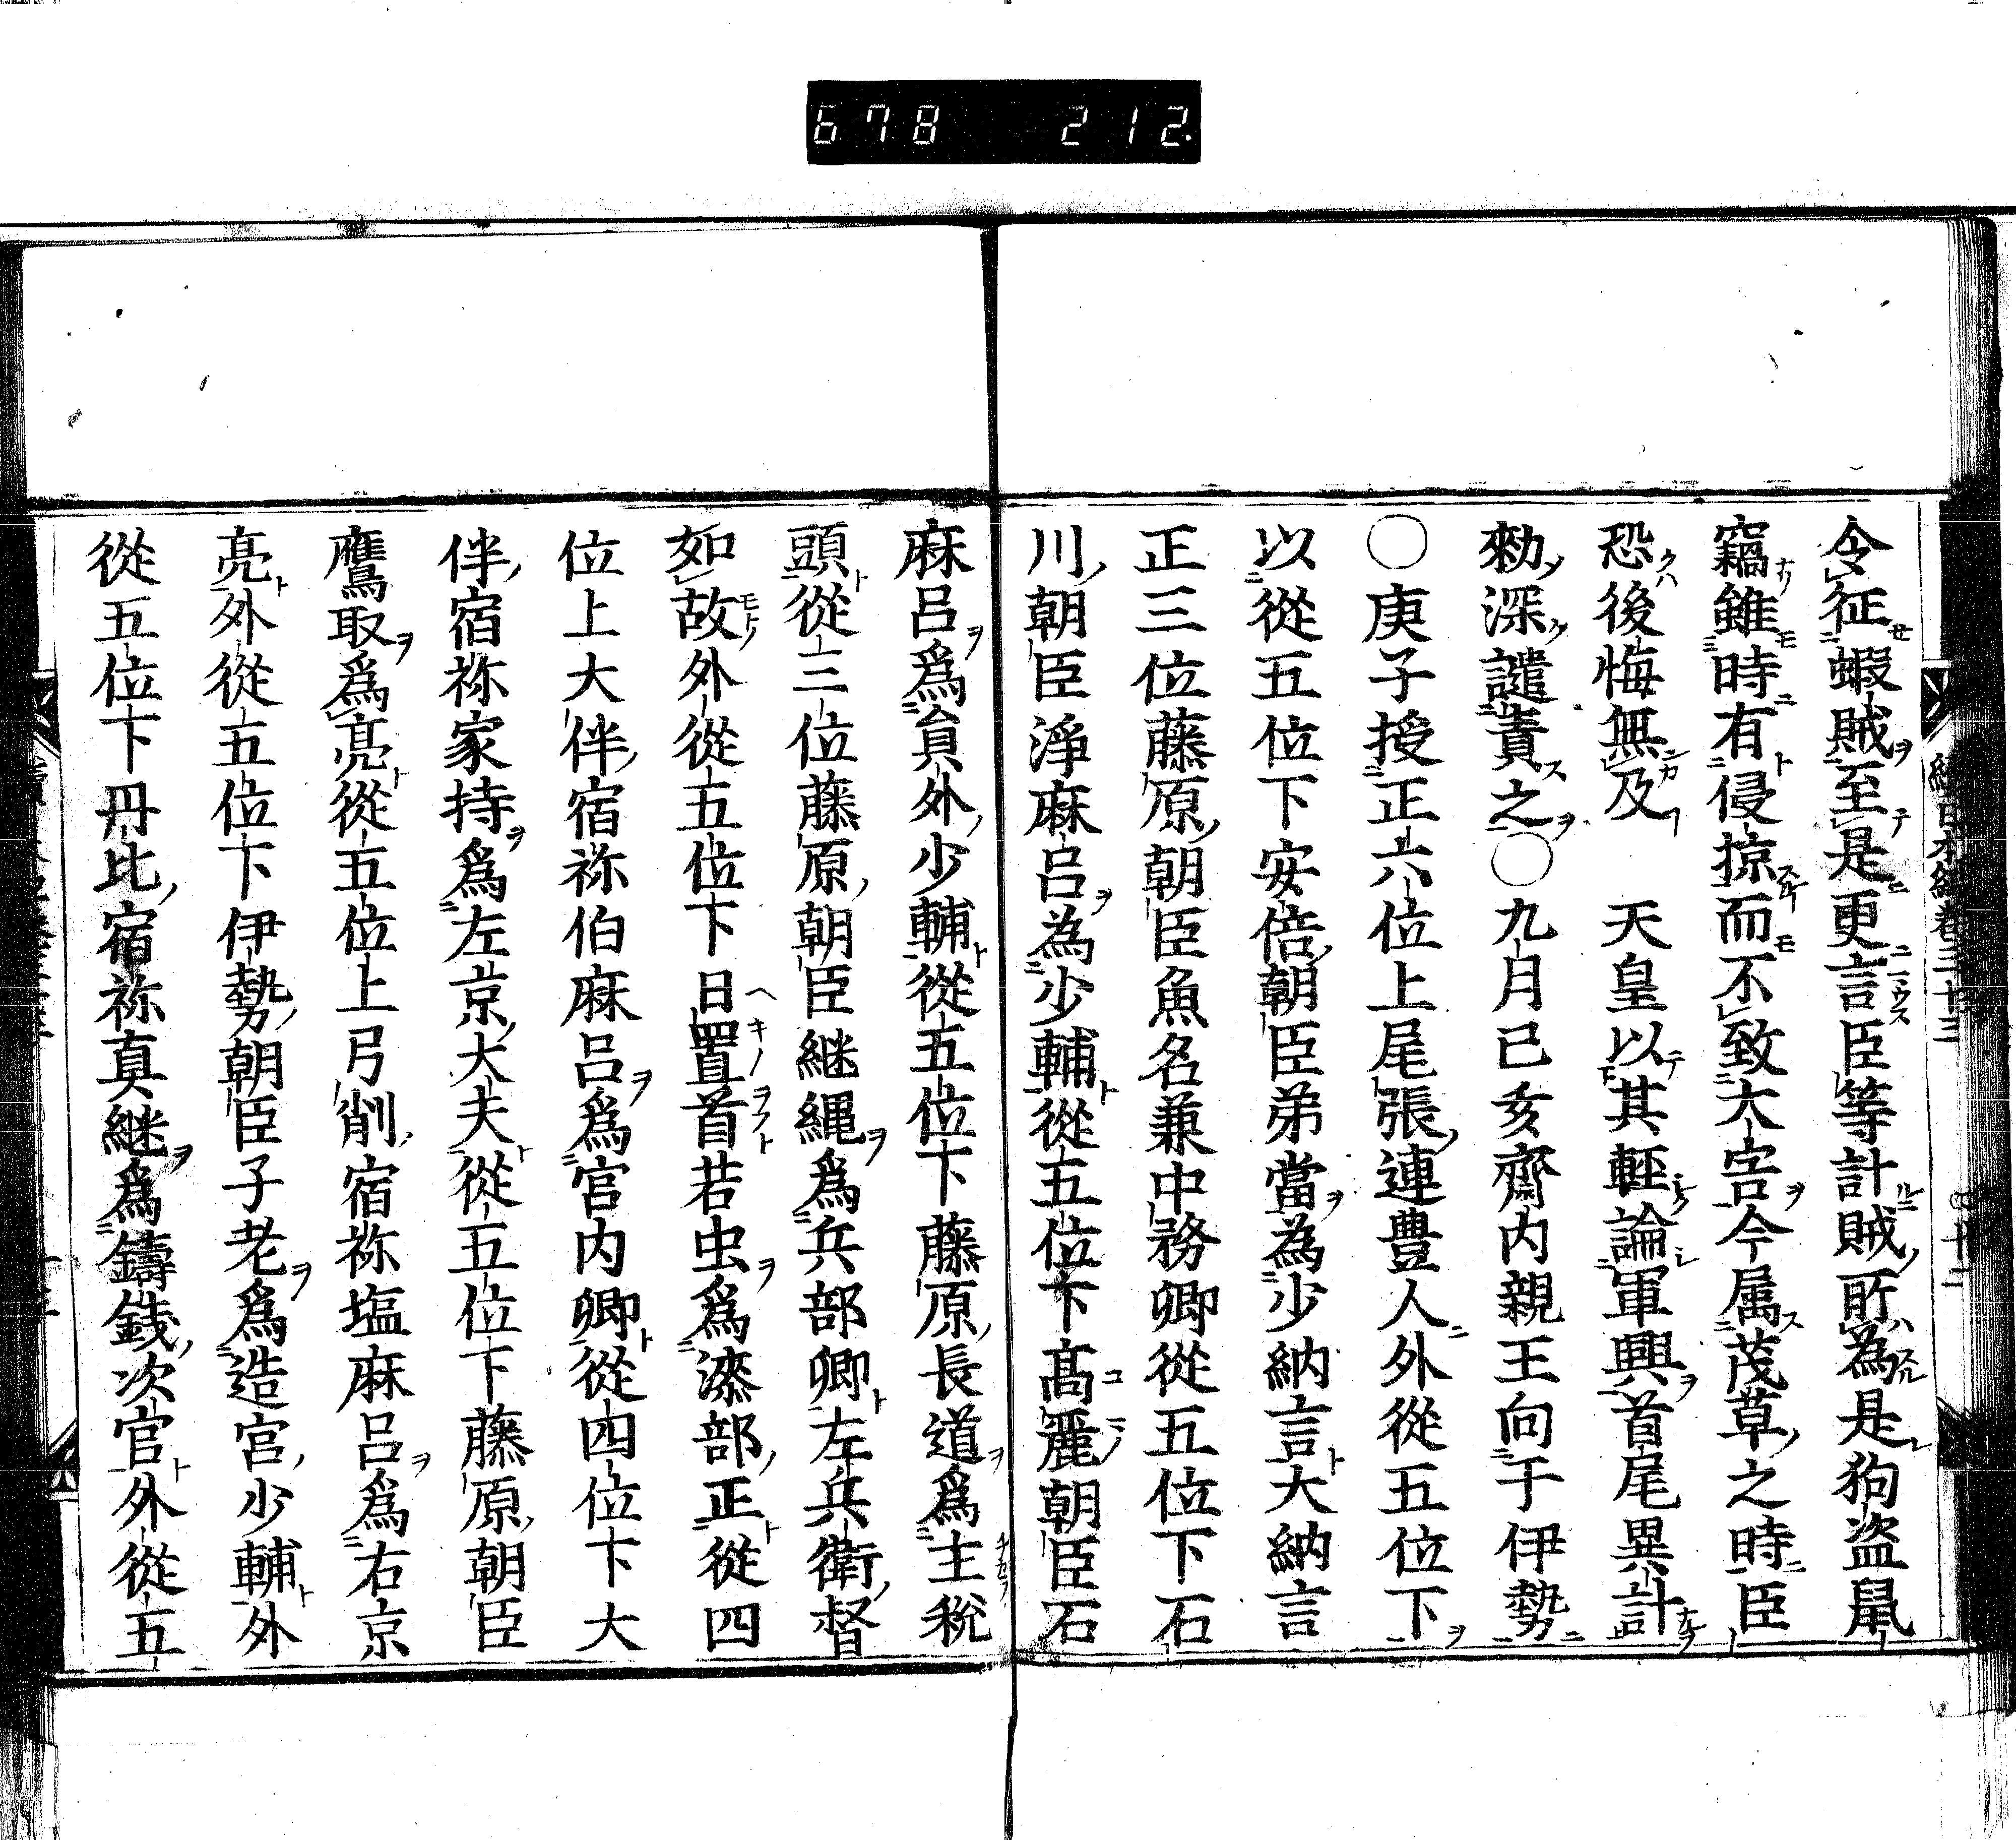 678 212
令征蝦賊至是更言臣等計賊所為是狗盗鼠
竊雖時有侵掠而不致大害今属茂草之時臣
恐後悔無及 天皇以其輕論軍興首尾異計
勑深譴責之○九月己亥齋内親王向于伊勢
○庚子授正六位上尾張連豊人外從五位下
以從五位下安倍朝臣弟當為少納言大納言
正三位藤原朝臣魚名兼中務卿從五位下石
川朝臣淨麻呂為少輔從五位下髙麗朝臣石
麻呂爲員外少輔從五位下藤原長道爲主税
頭從三位藤原朝臣継縄爲兵部卿左兵衛督
如故外從五位下日置首若虫爲漆部正從四
位上大伴宿祢伯麻呂爲宮内卿從四位下大
伴宿祢家持爲左京大夫從五位下藤原朝臣
鷹取爲亮從五位上弓削宿祢塩麻呂爲右京
亮外從五位下伊勢朝臣子老爲造宮少輔外
從五位下丹比宿祢真継爲鑄錢次官外從五